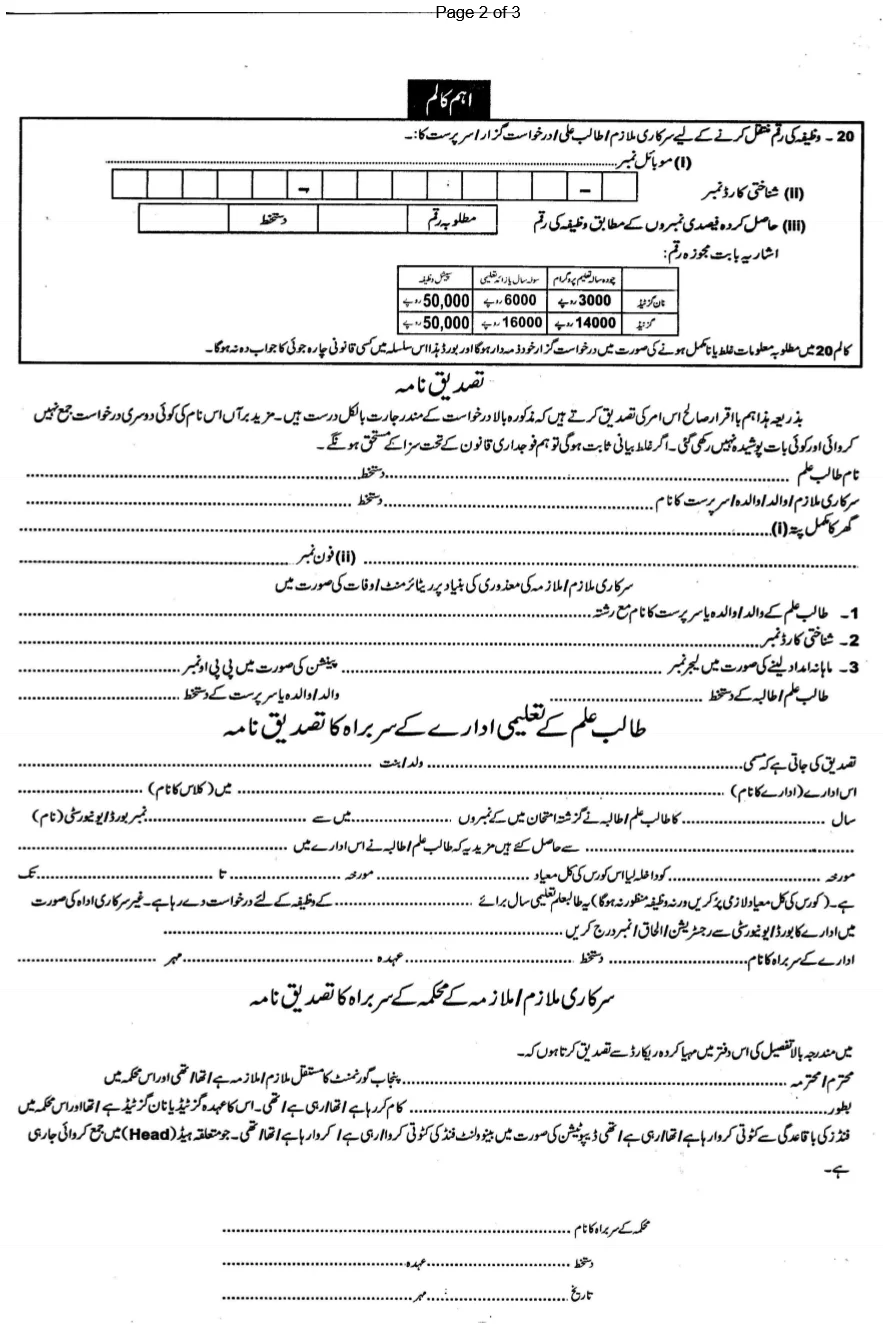 Page 2 of 3
اہم کالم
20 - وظیفہ کی رقم منتقل کرنے کے لیے سرکاری ملازم/طالب علی/درخواست گزار/سرپرست کا:-
(i) موبائل نمبر........................
(ii) شناختی کارڈ نمبر - -
(iii) حاصل کردہ فیصدی نمبروں کے مطابق وظیفہ کی رقم مطلوبہ رقم دستخط
اشاریہ بابت مجوزہ رقم:
چودہ سالہ تعلیم پروگرام سولہ سال یا زائد تعلیمی سپیشل وظیفہ
نان گزٹیڈ 3000 روپے 6000 روپے 50,000 روپے
گزٹیڈ 14000 روپے 16000 روپے 50,000 روپے
کالم 20 میں مطلوبہ معلومات غلط یا نامکمل ہونے کی صورت میں درخواست گزار خود ذمہ دار ہوگا اور بورڈ ہذا اس سلسلہ میں کسی قانونی چارہ جوئی کا جواب دہ نہ ہوگا۔
تصدیق نامہ
بذریعہ ہذا ہم با اقرار صالح اس امر کی تصدیق کرتے ہیں کہ مذکورہ بالا درخواست کے مندرجارت بالکل درست ہیں۔ مزید برآں اس نام کی کوئی دوسری درخواست جمع نہیں
کروائی اور کوئی بات پوشیدہ نہیں رکھی گئی۔ اگر غلط بیانی ثابت ہوگی تو ہم فوجداری قانون کے تحت سزا کے مستحق ہونگے۔
نام طالب علم ........................ دستخط ........................
سرکاری ملازم/والد/والدہ/سرپرست کا نام ........................ دستخط ........................
گھر کا مکمل پتہ (i)........................
........................ (ii) فون نمبر ........................
سرکاری ملازم/ملازمہ کی معذوری کی بنیاد پر ریٹائرمنٹ/وفات کی صورت میں
1- طالب علم کے والد/والدہ یا سرپرست کا نام مع رشتہ ........................
2- شناختی کارڈ نمبر ........................
3- ماہانہ امداد لینے کی صورت میں لیجر نمبر ........................ پینشن کی صورت میں پی پی او نمبر ........................
طالب علم/طالبہ کے دستخط ........................ والد/والدہ یا سرپرست کے دستخط ........................
طالب علم کے تعلیمی ادارے کے سربراہ کا تصدیق نامہ
تصدیق کی جاتی ہے کہ مسمی ........................ ولد/بنت ........................
اس ادارے (ادارے کا نام) ........................ میں (کلاس کا نام) ........................
سال ........................ کا طالب علم/طالبہ نے گزشتہ امتحان میں کے نمبروں ........................ میں سے ........................ نمبر بورڈ/یونیورسٹی (نام)
........................ سے حاصل کئے ہیں مزید یہ کہ طالب علم/طالبہ نے اس ادارے میں ........................
مورخہ ........................ کو داخلہ لیا اس کورس کی کل معیاد ........................ مورخہ ........................ تا ........................ تک
ہے۔ (کورس کی کل معیاد لازمی پُر کریں ورنہ وظیفہ منظور نہ ہوگا) یہ طالبعلم تعلیمی سال برائے ........................ کے وظیفہ کے لئے درخواست دے رہا ہے۔ غیر سرکاری اداہ کی صورت
میں ادارے کا بورڈ/یونیورسٹی سے رجسٹریشن/الحاق/نمبر درج کریں ........................
ادارے کے سربراہ کا نام ........................ دستخط ........................ عہدہ ........................ مہر ........................
سرکاری ملازم/ملازمہ کے محکمہ کے سربراہ کا تصدیق نامہ
میں مندرجہ بالا تفصیل کی اس دفتر میں مہیا کردہ ریکارڈ سے تصدیق کرتا ہوں کہ۔
محترم/محترمہ ........................ پنجاب گورنمنٹ کا مستقل ملازم/ملازمہ ہے/تھا/تھی اور اس محکمہ میں
بطور ........................ کام کر رہا ہے/تھا/رہی ہے/تھی۔ اس کا عہدہ گزٹیڈ یا نان گزٹیڈ ہے/تھا اور اس محکمہ میں
فنڈز کی باقاعدگی سے کٹوتی کروا رہا ہے/تھا/رہی ہے/تھی ڈیپوٹیشن کی صورت میں بینوولنٹ فنڈ کی کٹوتی کروا/رہی ہے/کروا رہا ہے/تھا/تھی۔ جو متعلقہ ہیڈ (Head) میں جمع کروائی جا رہی
ہے۔
محکمہ کے سربراہ کا نام ........................
دستخط ........................ عہدہ ........................
تاریخ ........................ مہر ........................